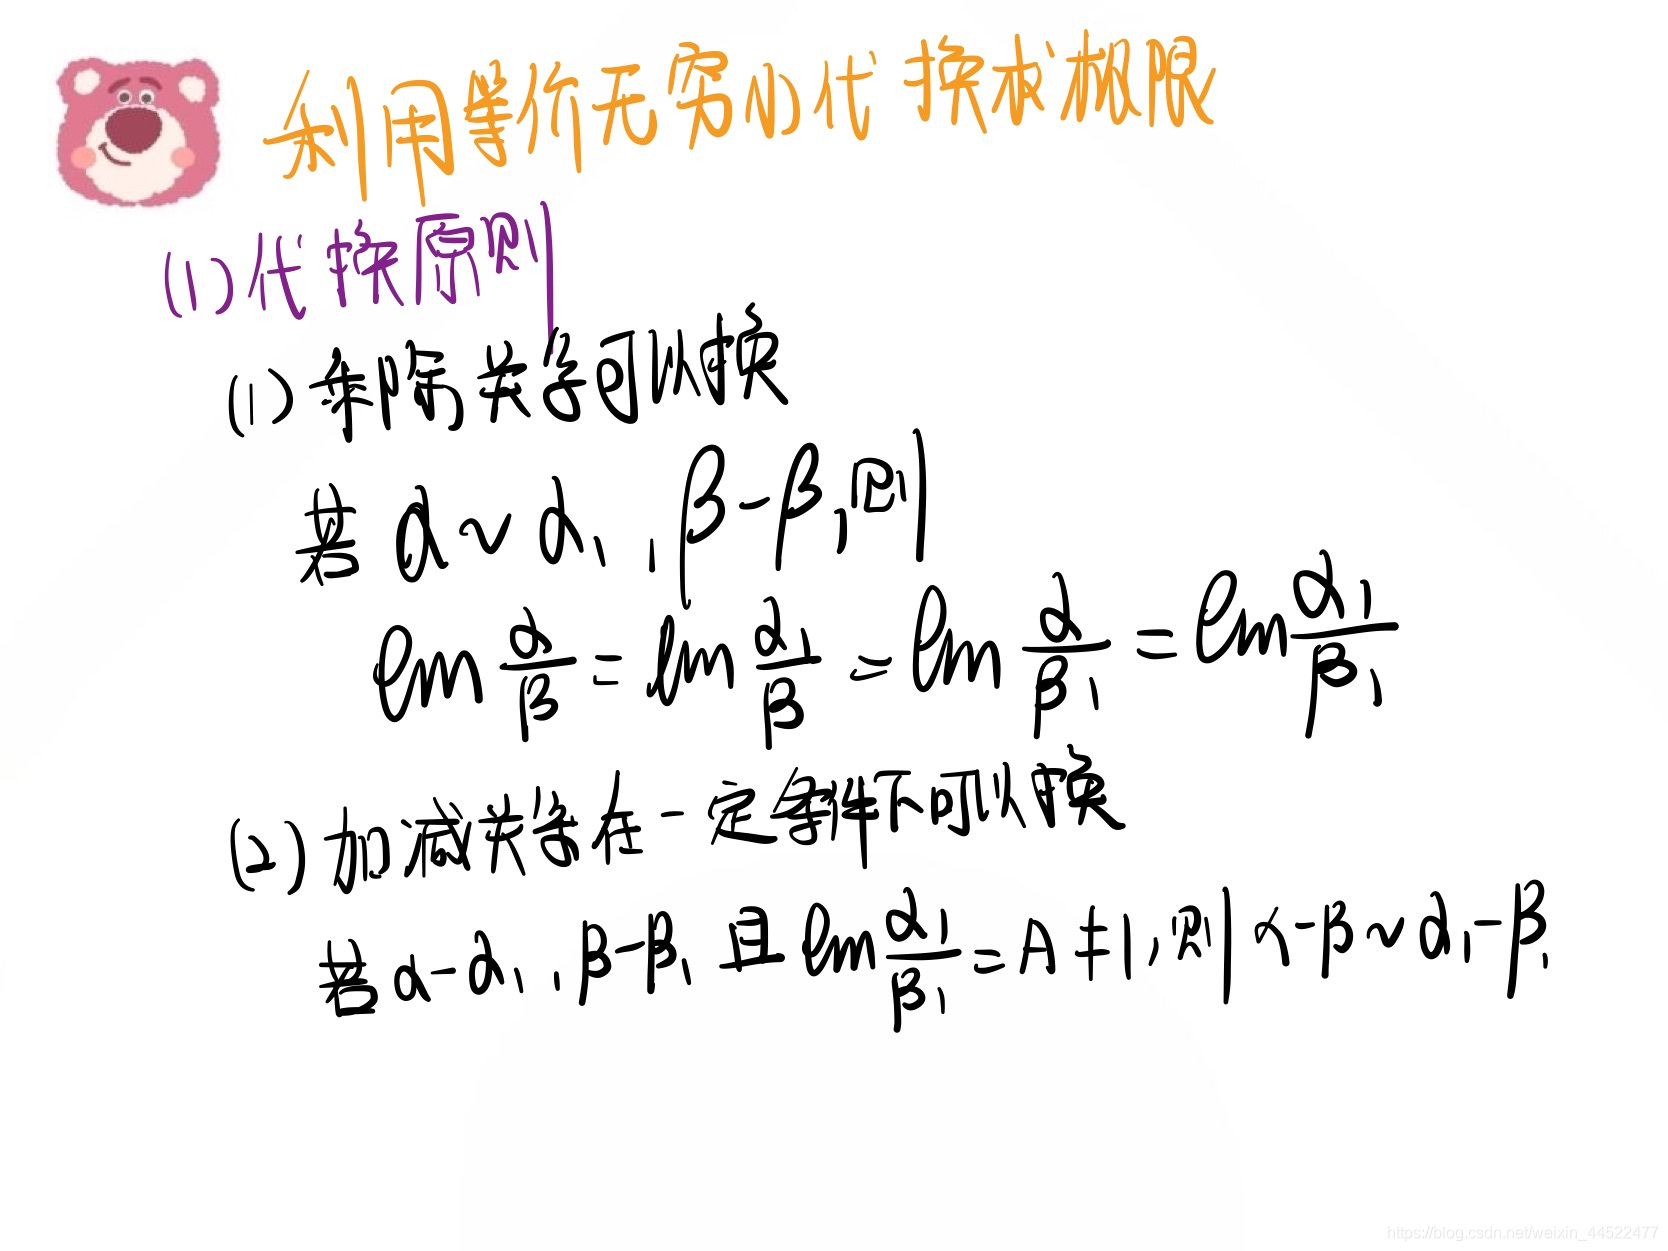 利用等价无穷小代换求极限
(1)代换原则
(1)乘除关系可以换
若 α ~ α₁, β - β₁则
lim α/β = lim α₁/β = lim α/β₁ = lim α₁/β₁
(2)加减关系在一定条件下可以换
若 α - α₁, β - β₁ 且 lim α₁/β₁ = A ≠ 1, 则 α - β ~ α₁ - β₁
https://blog.csdn.net/weixin_44522477